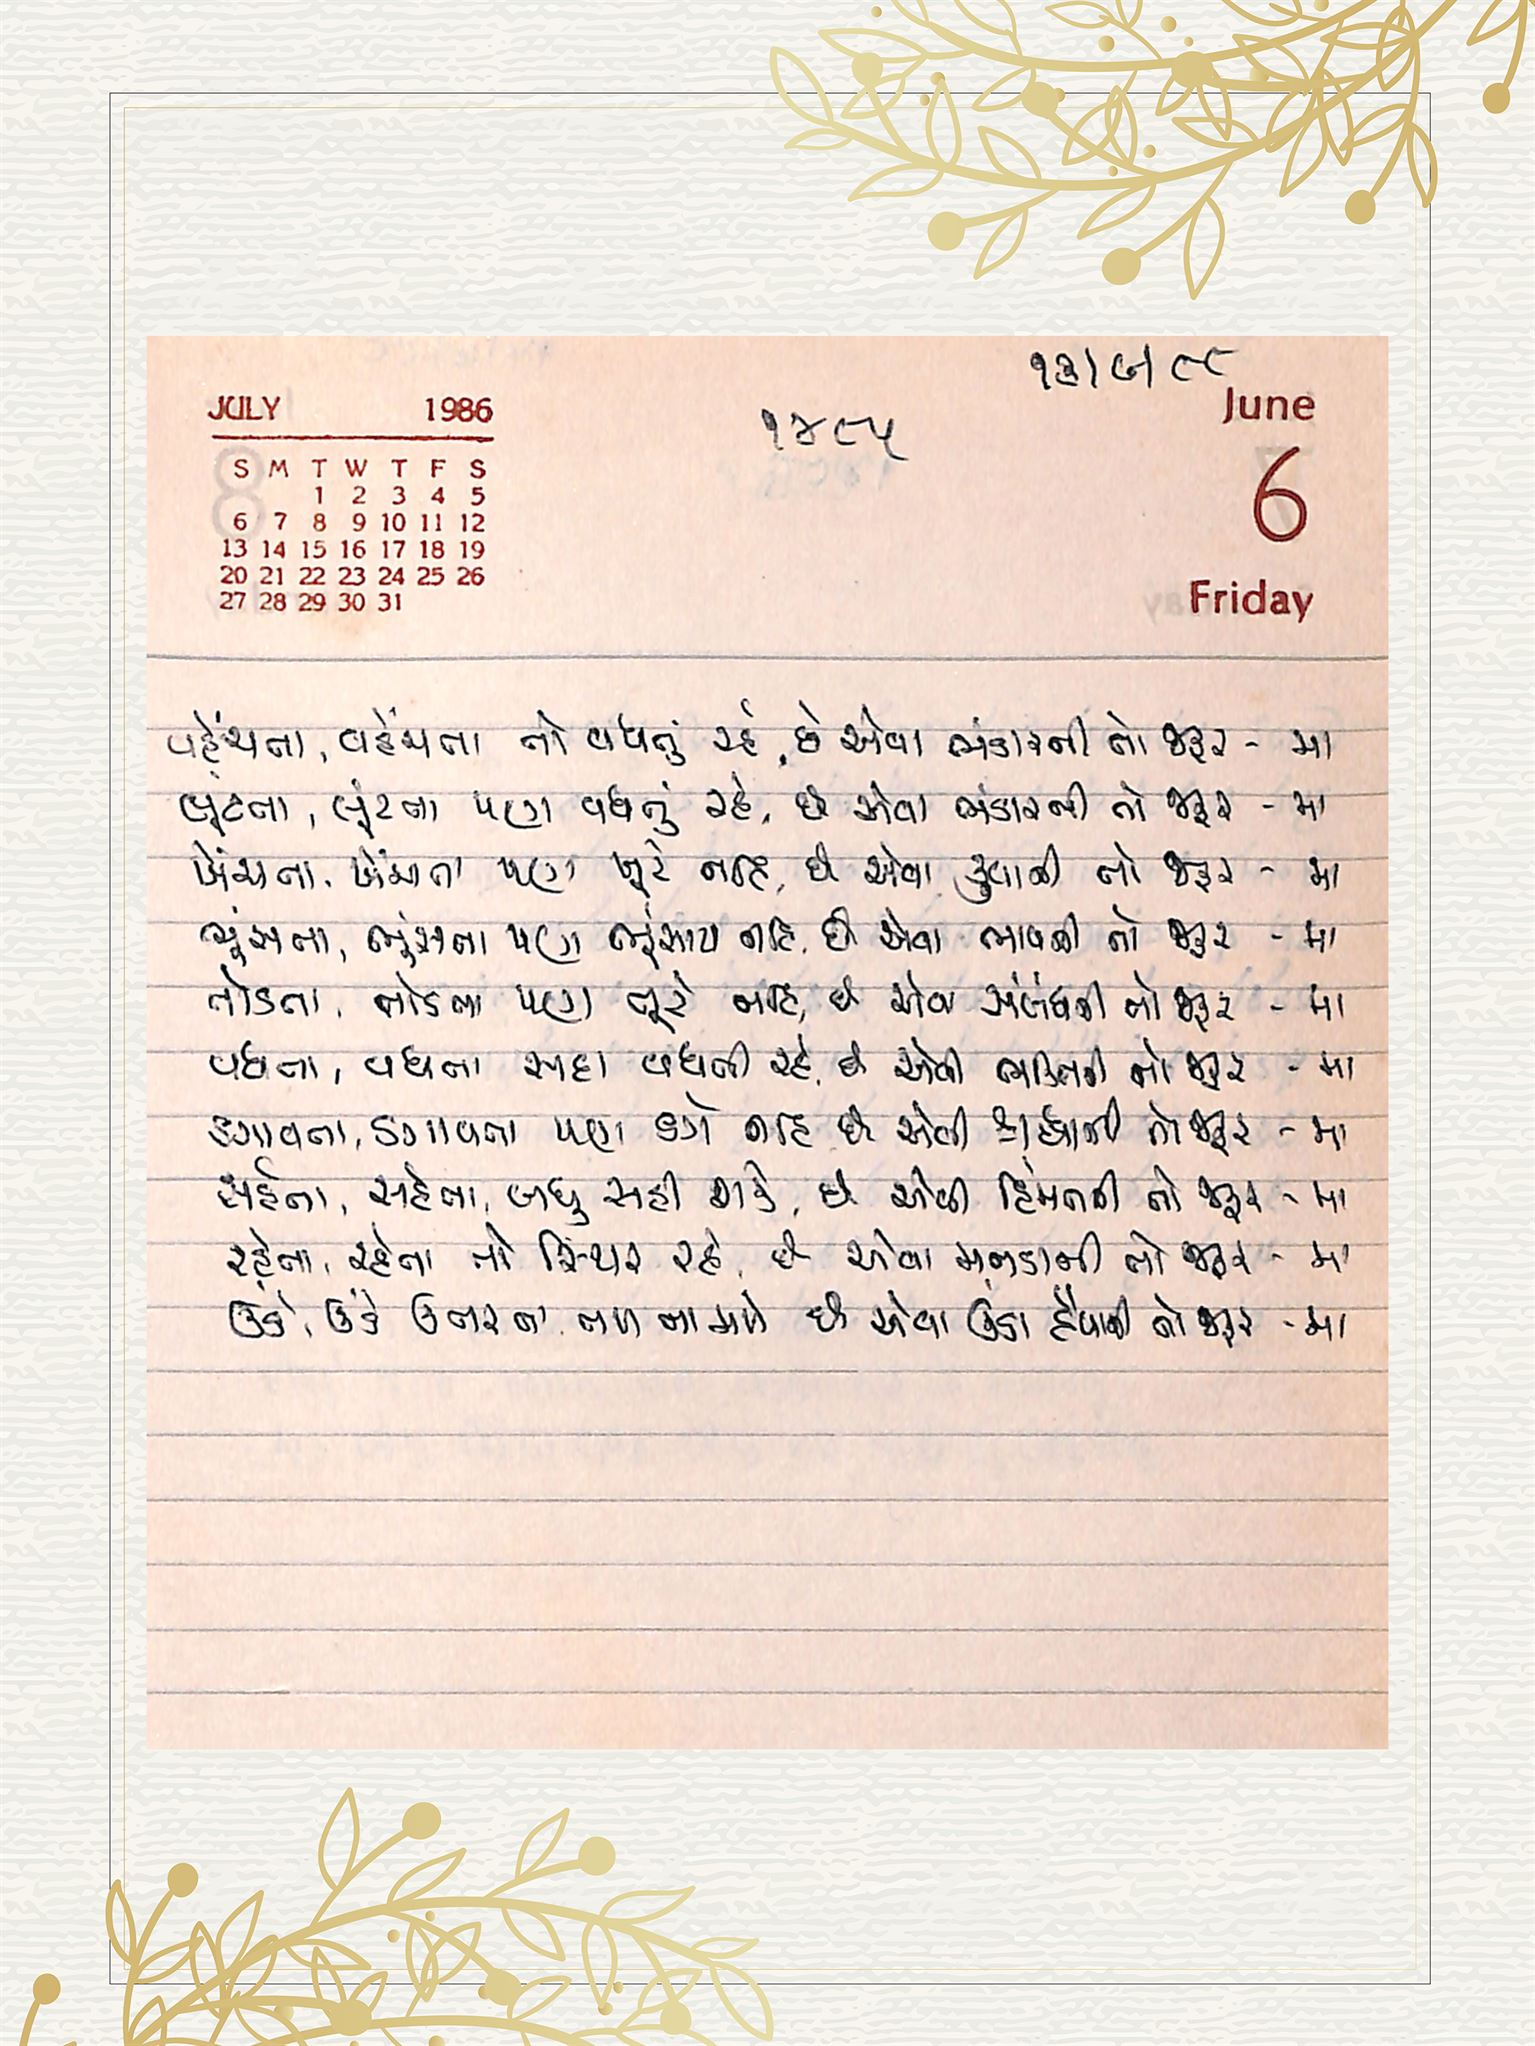 ૧૩/૭/૮૮
JULY 1986
June
૧૪૮૫
S M T W T F S
1 2 3 4 5
6 7 8 9 10 11 12
6
13 14 15 16 17 18 19
20 21 22 23 24 25 26
27 28 29 30 31
Friday
વહેંચતા, વહેંચતા તો વધતું રહે, છે એવા ભંડારની તો જરૂર - મા
લૂંટતા, લૂંટતા પણ વધતું રહે, છે એવા ભંડારની તો જરૂર - મા
ખેંચતા, ખેંચતા પણ ખૂટે નહિ, છે એવા કુવાની તો જરૂર - મા
ભૂંસતા, ભૂંસતા પણ ભૂંસાય નહિ, છે એવા ભાવની તો જરૂર - મા
તોડતા, તોડતા પણ તૂટે નહિ, છે એવા સંબંધની તો જરૂર - મા
વધતા, વધતા સદા વધતી રહે, છે એવી ભક્તિની તો જરૂર - મા
ડગાવતા, ડગાવતા પણ ડગે નહિ છે એવી શ્રદ્ધાની તો જરૂર - મા
સહેતા, સહેતા, બધુ સહી શકે, છે એવી હિંમતની તો જરૂર - મા
રહેતા, રહેતા તો સ્થિર રહે, છે એવા મનડાની તો જરૂર - મા
ઉંડે, ઉંડે ઉતરતા તળ ના મળે છે એવા ઉંડા હૈંયાની તો જરૂર - મા